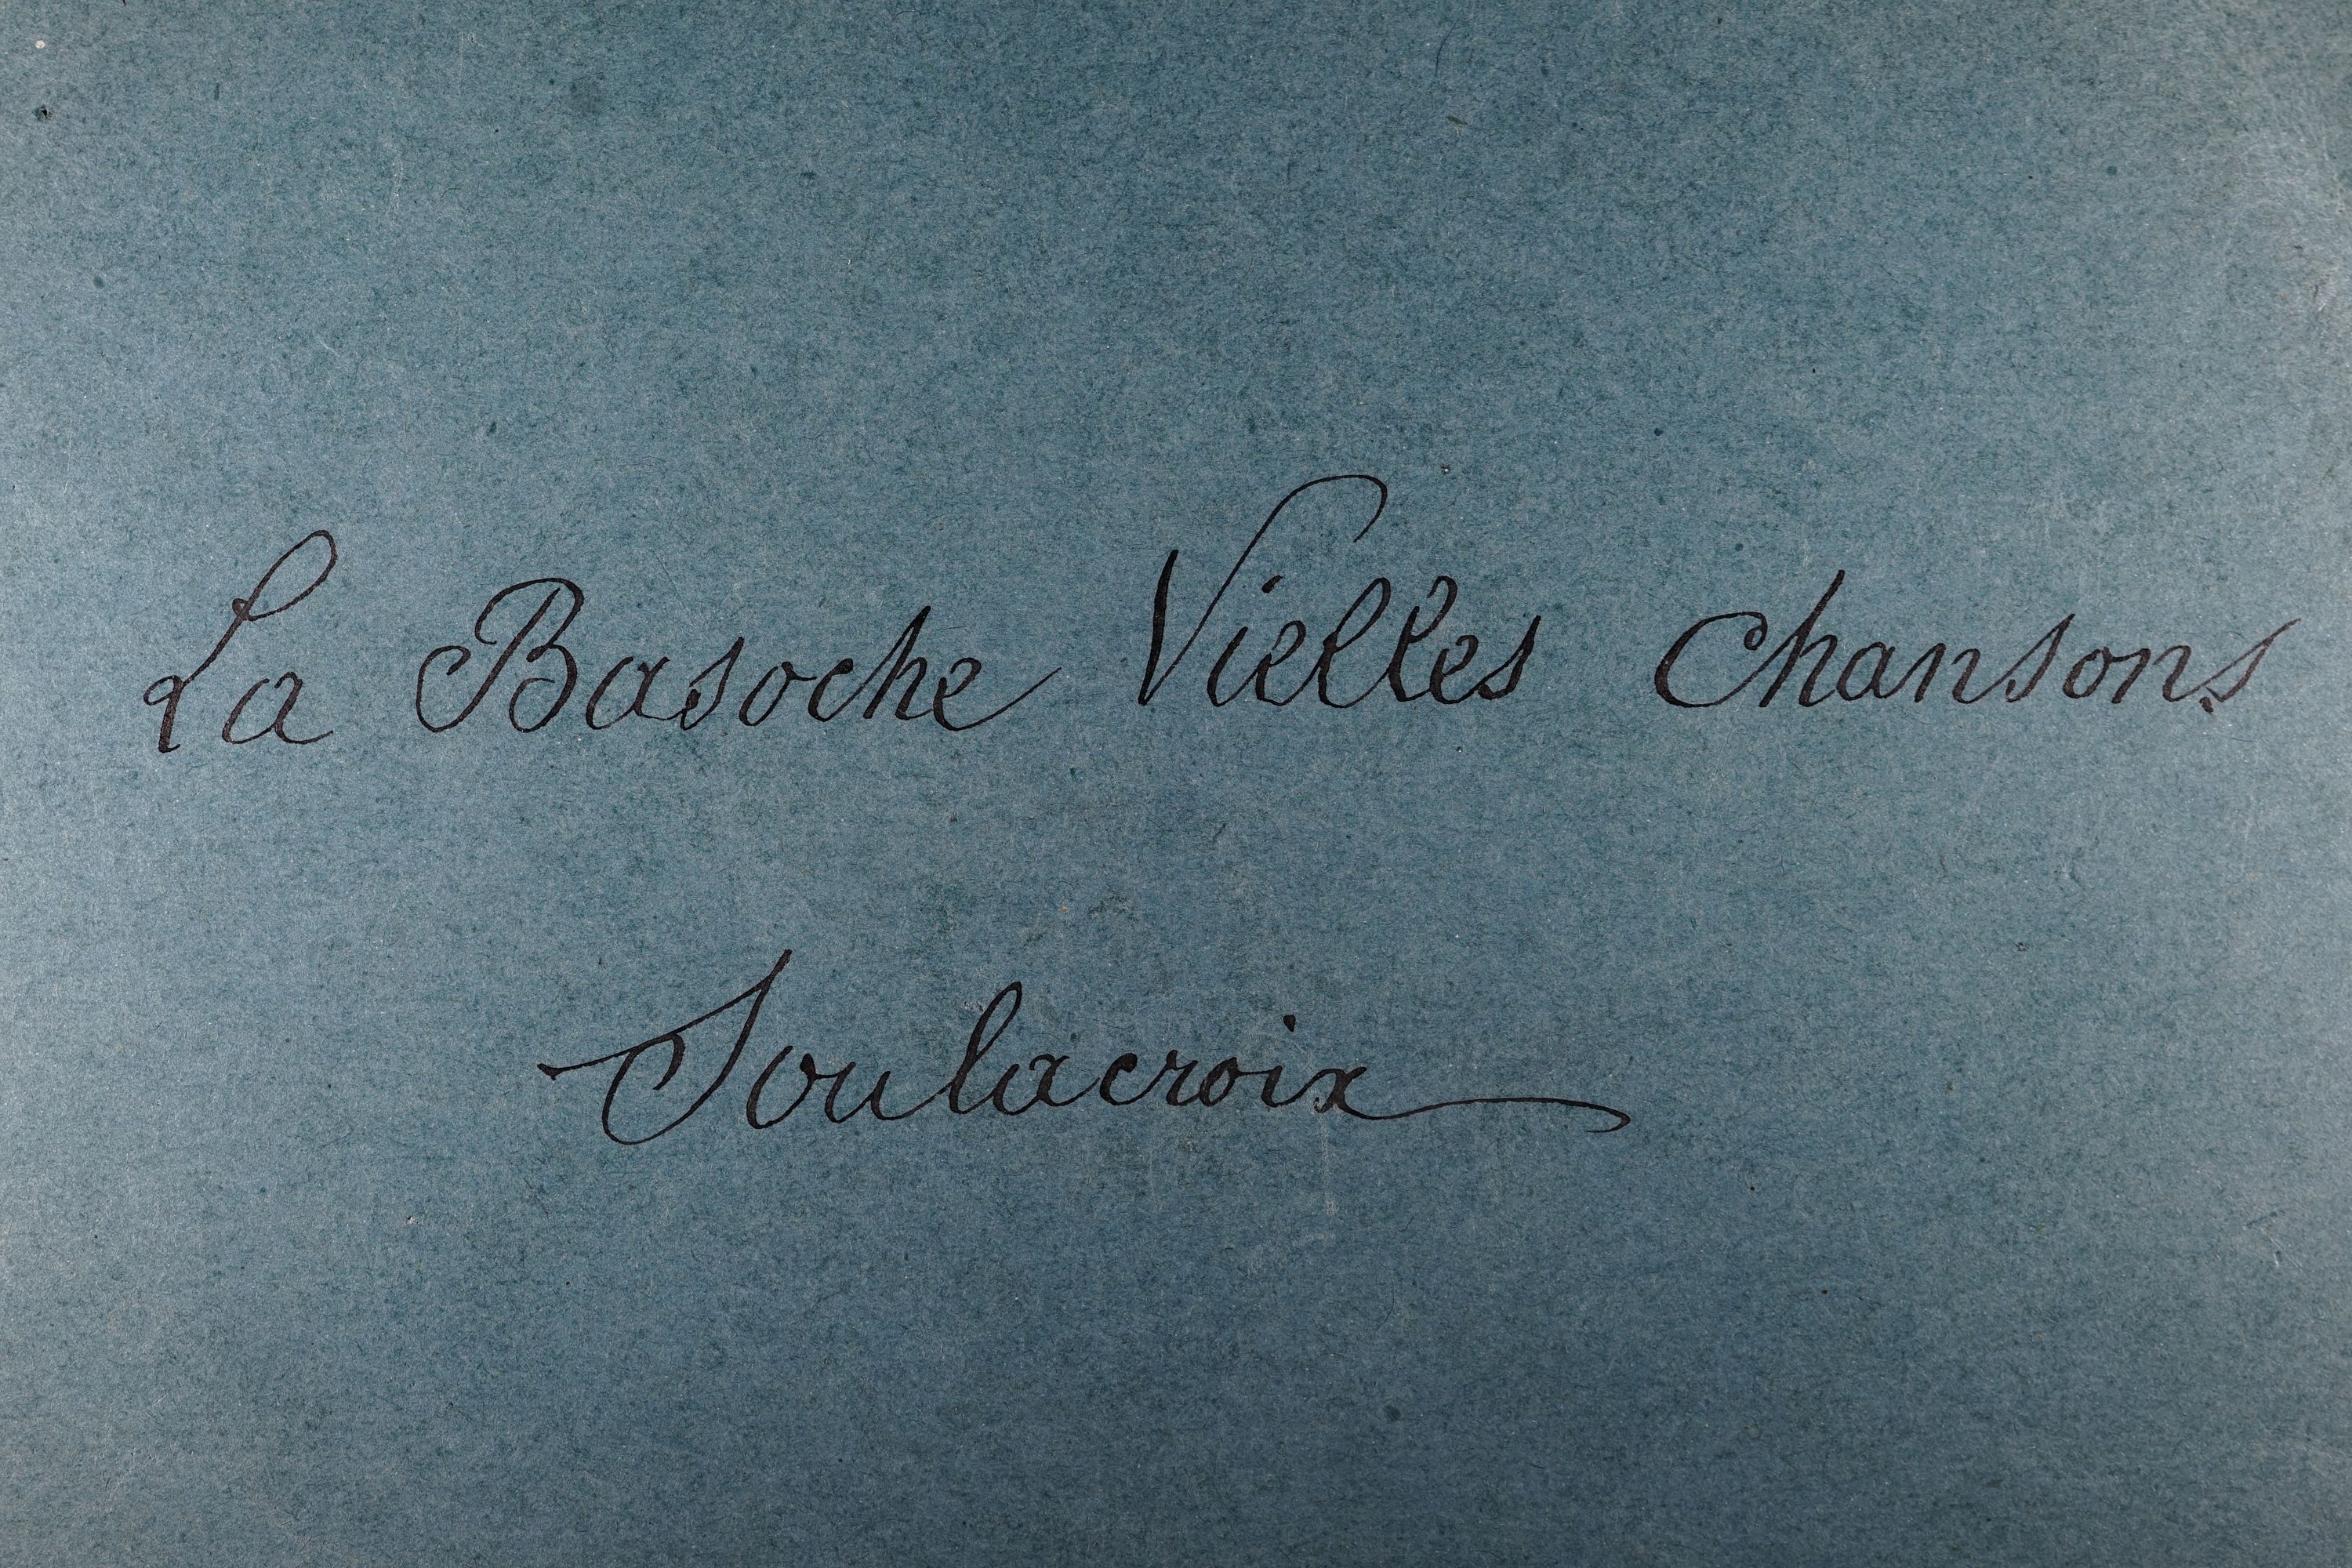 La Basoche Vielles chansons
Soulacroix